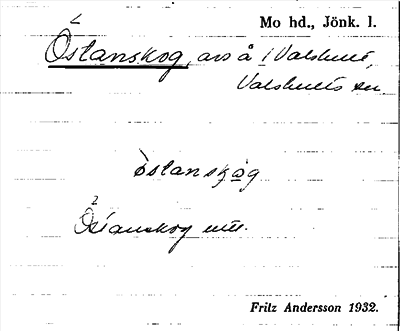 Mo hd., Jönk. l.
Östanskog, avs å i Valshult,
Valshults sn
östanskåg
2
Östanskog utt.
Fritz Andersson 1932.